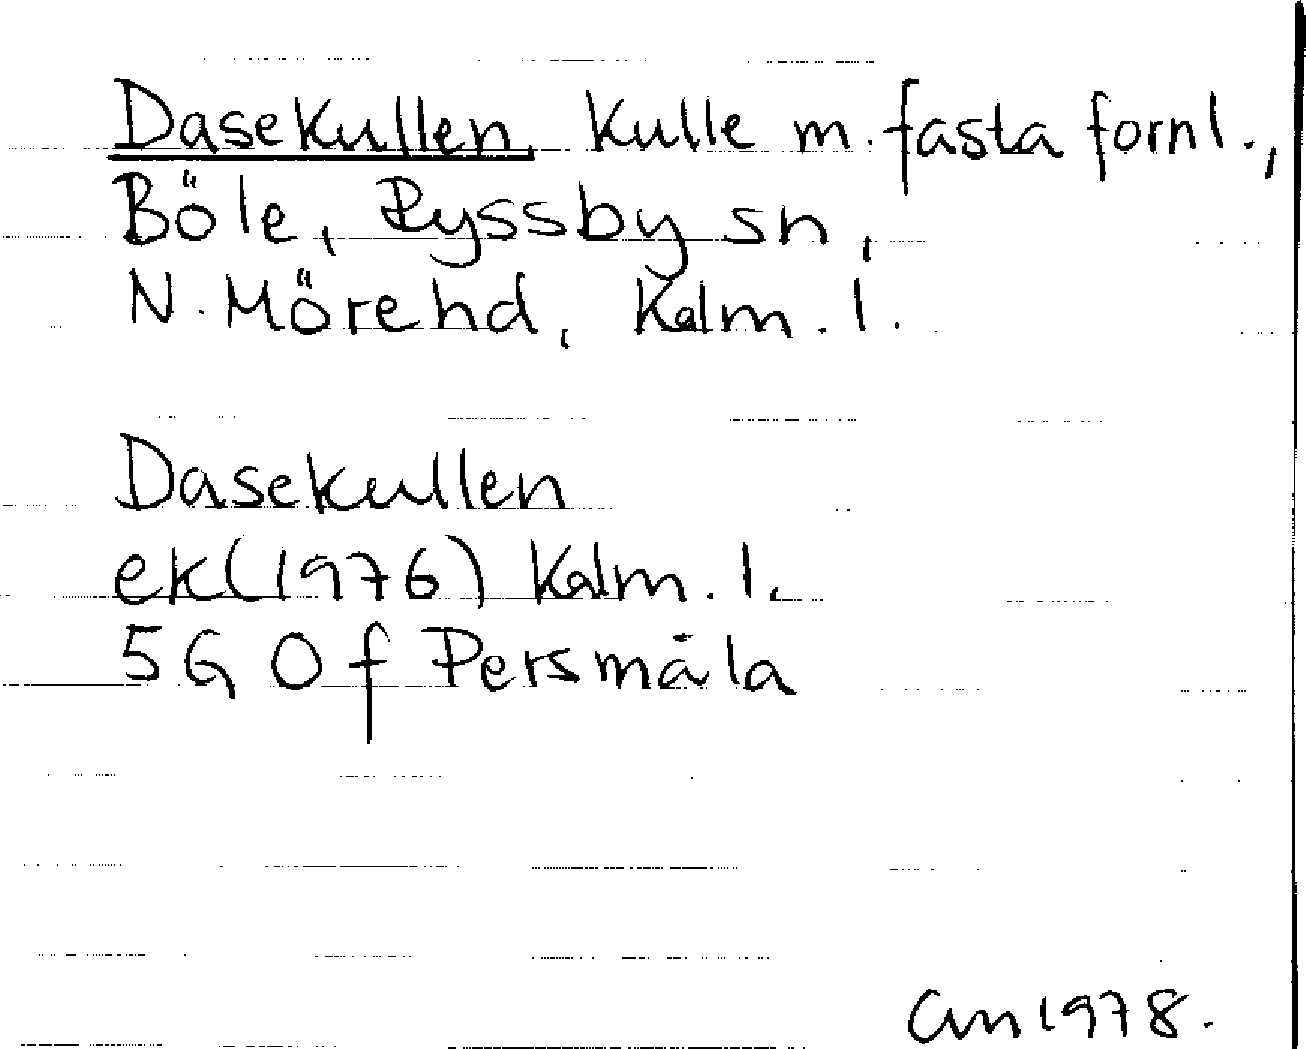 Dasekullen, kulle m. fasta fornl.,
Böle, Ryssby sn,
N. Möre hd, Kalm. l.
Dasekullen
ek (1976) Kalm. l.
5G 0f Persmåla
1978.